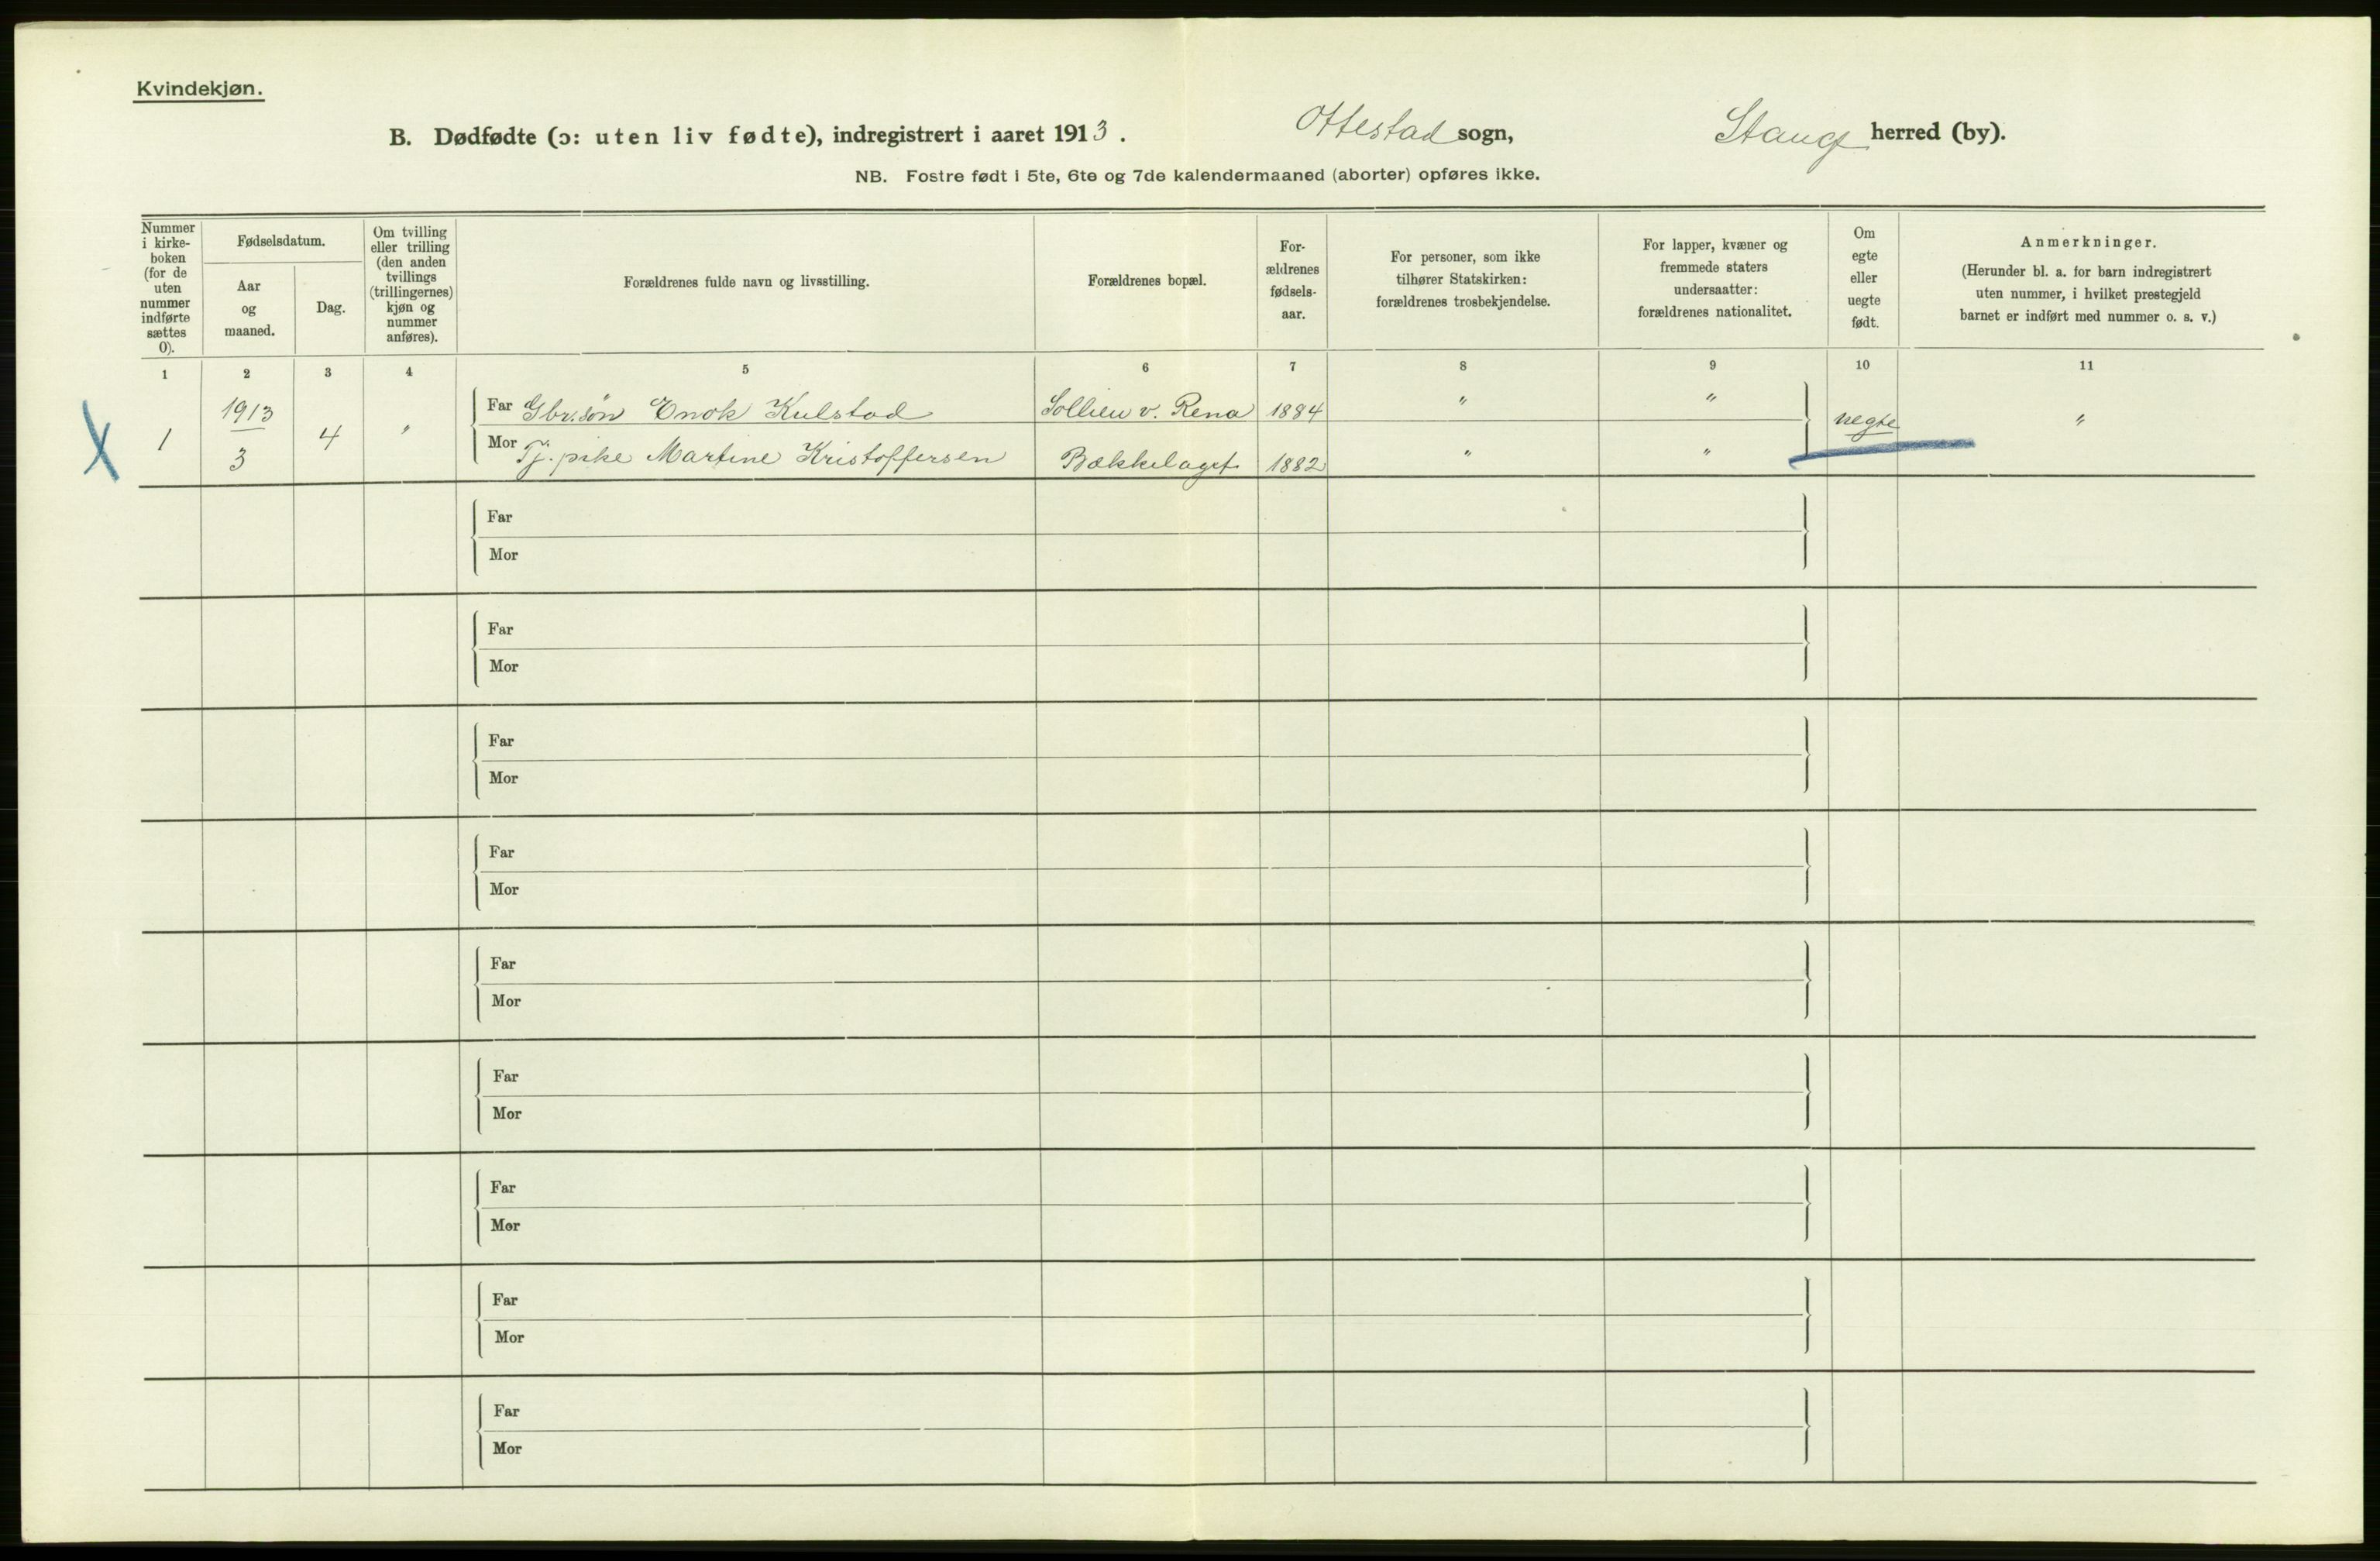 Kvindekjøn.
B. Dødfødte (ɔ: uten liv fødte), indregistrert i aaret 1913. Ottestad sogn, Stange herred (by).
NB. Fostre født i 5te, 6te og 7de kalendermaaned (aborter) opføres ikke.
Nummer
i kirke-
boken
(for de
uten
nummer
indførte
sættes
0).
Fødselsdatum.
Aar
og
maaned.
Dag.
Om tvilling
eller trilling
(den anden
tvillings
(trillingernes)
kjøn og
nummer
anføres).
Forældrenes fulde navn og livsstilling.
Forældrenes bopæl.
For-
ældrenes
fødsels-
aar.
For personer, som ikke
tilhører Statskirken:
forældrenes trosbekjendelse.
For lapper, kvæner og
fremmede staters
undersaatter:
forældrenes nationalitet.
Om
egte
eller
uegte
født.
Anmerkninger.
(Herunder bl. a. for barn indregistrert
uten nummer, i hvilket prestegjeld
barnet er indført med nummer o. s. v.)
1 2 3 4 5 6 7 8 9 10 11
X 1 1913 3 4 "
Far Gbr.søn Enok Kulstad Sollien v. Rena 1884 " " uegte "
Mor Tj. pike Martine Kristoffersen Bækkelaget 1882 " "
Far
Mor
Far
Mor
Far
Mor
Far
Mor
Far
Mor
Far
Mor
Far
Mor
Far
Mor
Far
Mor